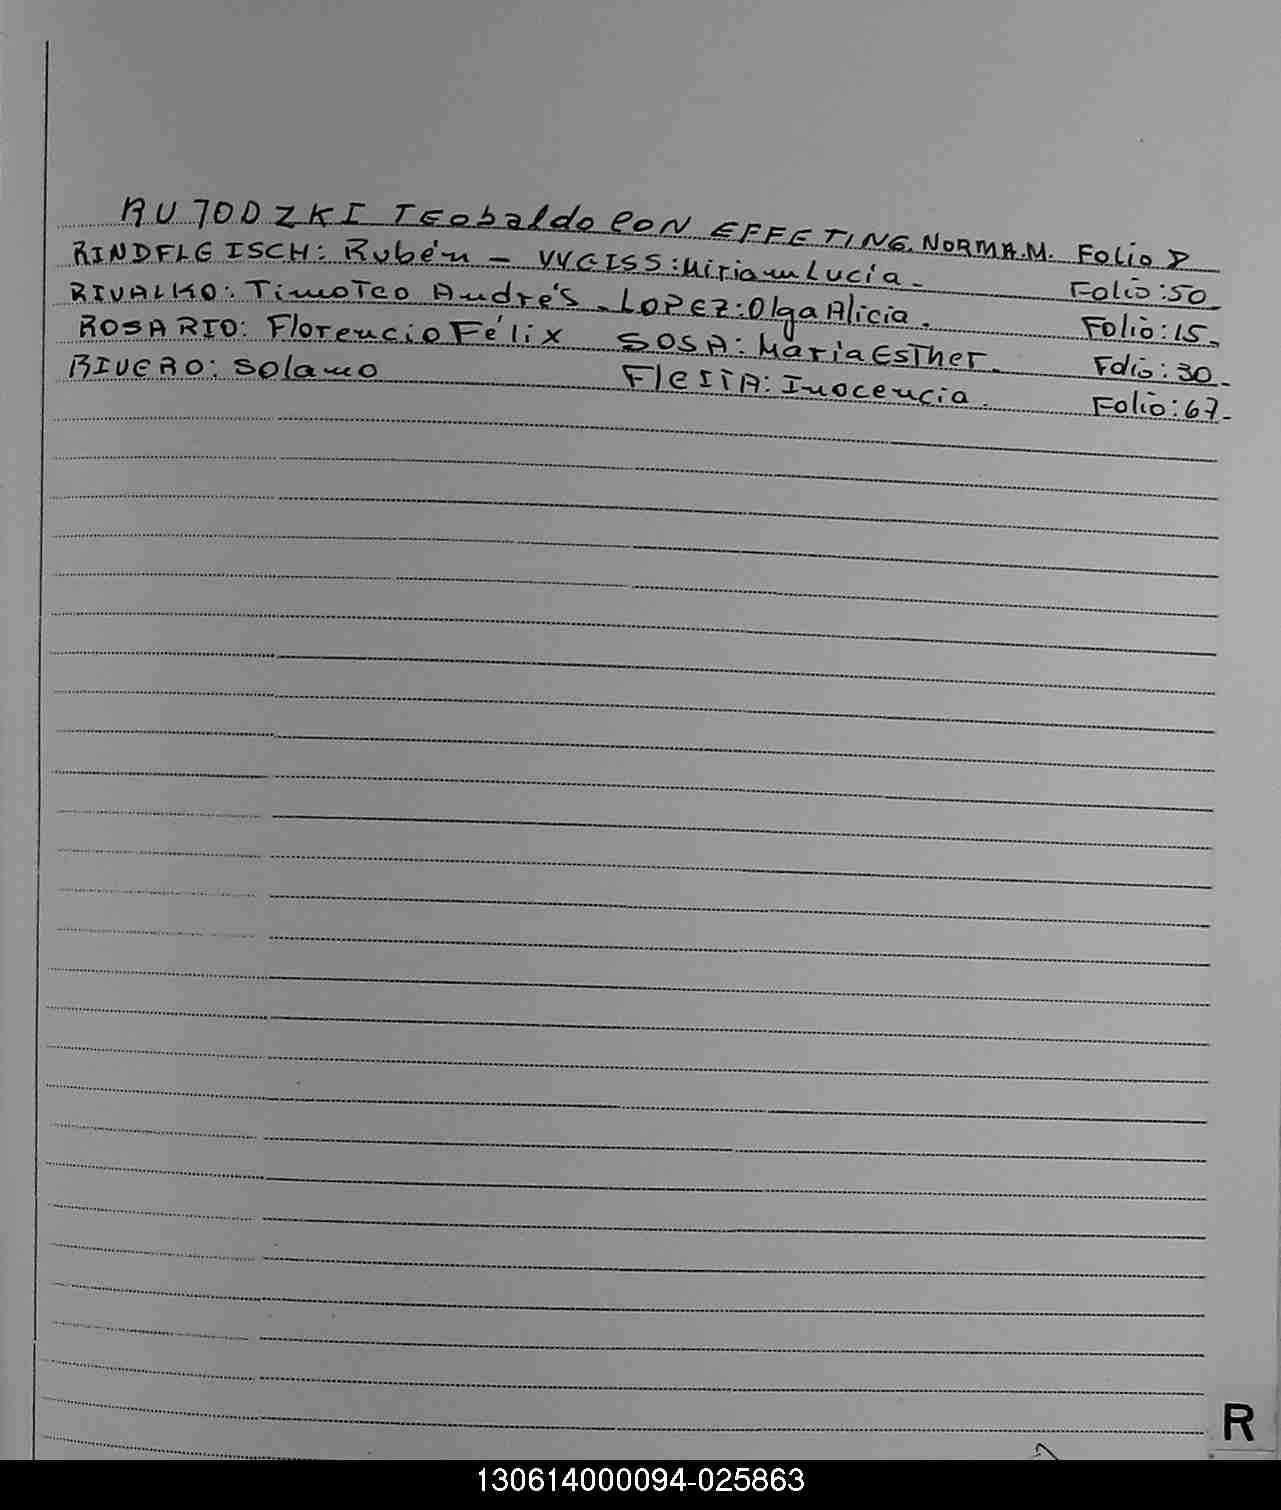 RUTODZKI TEobaldo CON EFFETING. NORMA.M. Folio 8
RINDFLEISCH: Rubén - WEISS: Miriam Lucia. Folio:50
RIVALKO: Timoteo Andrés. LOPEZ: Olga Alicia. Folio:15.
ROSARIO: Florencio Félix SOSA: Maria Esther. Folio:30.
RIVERO: Solano FleITA: Inocencia. Folio:67.
R
130614000094-025863